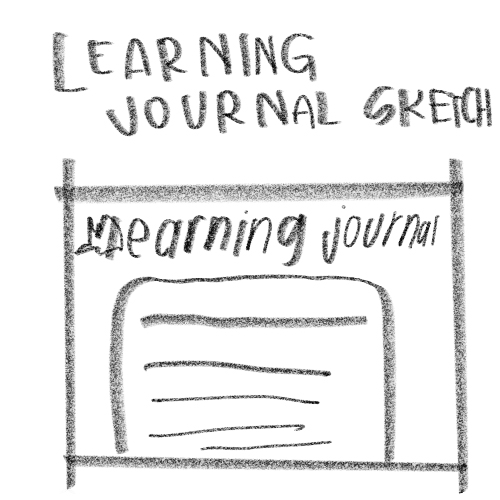 LEARNING
JOURNAL SKETCH
learning journal